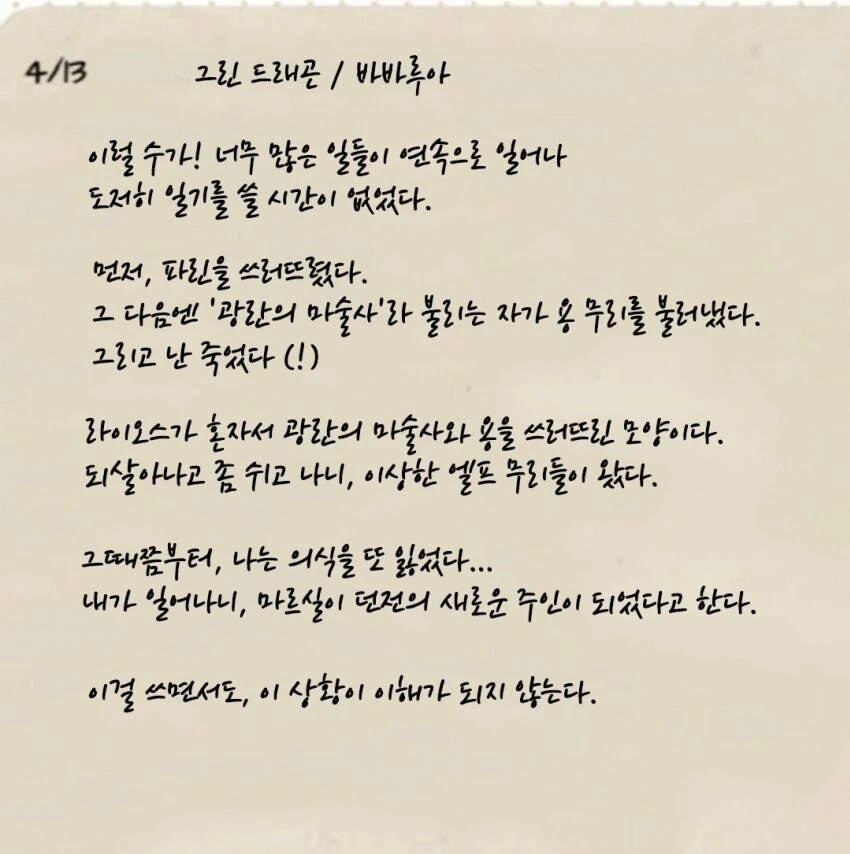 4/13 그린 드래곤 / 바바루아
이럴 수가! 너무 많은 일들이 연속으로 일어나
도저히 일기를 쓸 시간이 없었다.
먼저, 파린을 쓰러뜨렸다.
그 다음엔 '광란의 마술사'라 불리는 자가 용 무리를 불러냈다.
그리고 난 죽었다 (!)
라이오스가 혼자서 광란의 마술사와 용을 쓰러뜨린 모양이다.
되살아나고 좀 쉬고 나니, 이상한 엘프 무리들이 왔다.
그때쯤부터, 나는 의식을 또 잃었다...
내가 일어나니, 마르실이 던전의 새로운 주인이 되었다고 한다.
이걸 쓰면서도, 이 상황이 이해가 되지 않는다.